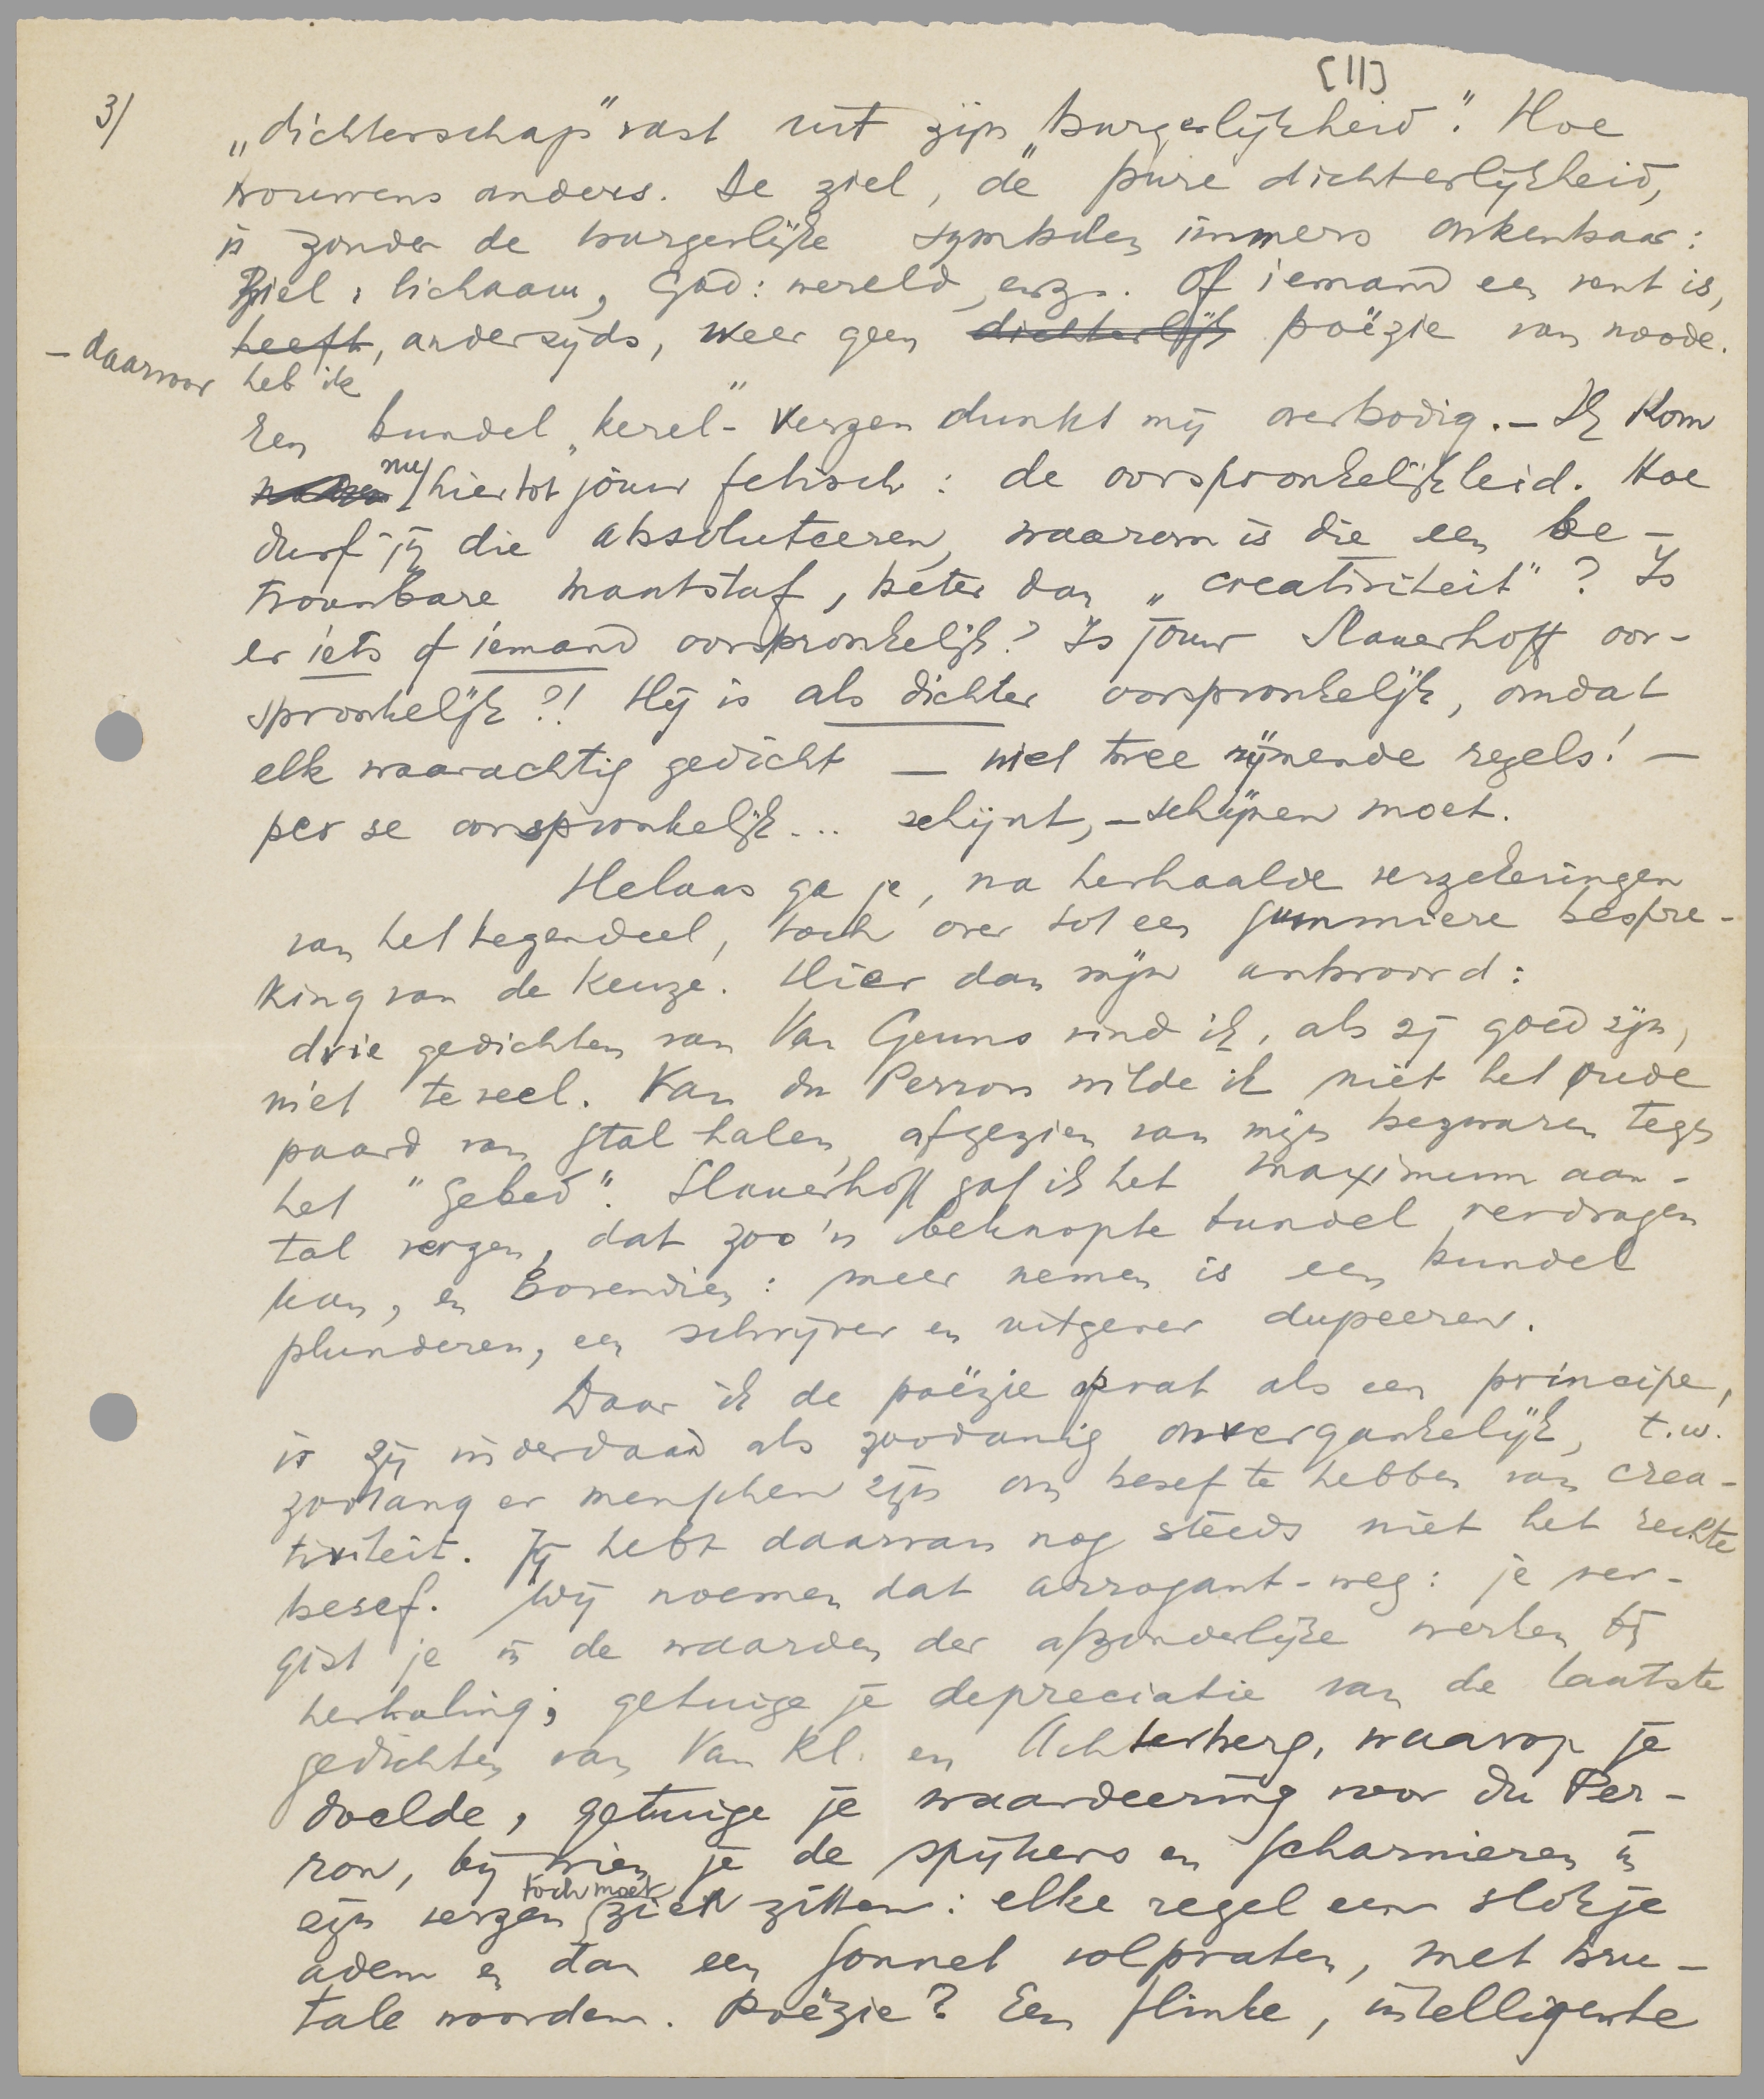 [11]
3/
„dichterschap" vast uit zijn „burgerlijkheid". Hoe
trouwens anders. De ziel, de pure dichterlijkheid,
is zonder de burgerlijke symbolen immers onkenbaar:
Ziel: lichaam, God: wereld, enz. Of iemand een vent is,
– daarvoor
heeft, anderzijds, weer geen dichterlijk poëzie van noode.
heb ik
Een bundel „kerel"-verzen dunkt mij overbodig. – Ik kom
nu hier tot jòuw fetisch: de oorspronkelijkheid. Hoe
durf jij die absoluteeren, waarom is die een be-
trouwbare maatstaf, beter dan „creativiteit"? Is
er iets of iemand oorspronkelijk? Is jouw Slauerhoff oor-
spronkelijk?! Hij is als dichter oorspronkelijk, omdat
elk waarachtig gedicht – niet twee rijmende regels! –
per se oorspronkelijk... schijnt, – schijnen moet.
Helaas ga je, na herhaalde verzekeringen
van het tegendeel, toch over tot een summiere bespre-
king van de keuze. Hier dan mijn antwoord:
drie gedichten van Van Geuns vind ik, als zij goed zijn,
niet te veel. Van du Perron wilde ik niet het oude
paard van stal halen, afgezien van mijn bezwaren tegen
het "Gebed". Slauerhoff gaf ik het maximum aan-
tal verzen, dat zoo'n beknopte bundel verdragen
kan, en bovendien: meer nemen is een bundel
plunderen, een schrijver en uitgever dupeeren.
Daar ik de poëzie opvat als een principe,
is zij inderdaad als zoodanig onvergankelijk, t.w.
zoolang er menschen zijn om besef te hebben van crea-
tiviteit. Jij hebt daarvan nog steeds niet het rechte
besef. Wij noemen dat arrogant-weg: je ver-
gist je in de waarden der afzonderlijke werken bij
herhaling; getuige je depreciatie van de laatste
gedichten van Van Kl. en Achterberg, waarop je
doelde, getuige je waardeering voor du Per-
ron, bij wien je de spijkers en scharnieren in
toch moet
zijn verzen zien zitten: elke regel een slokje
adem en dan een sonnet volpraten, met bru-
tale woorden. Poëzie? Een flinke, intelligente